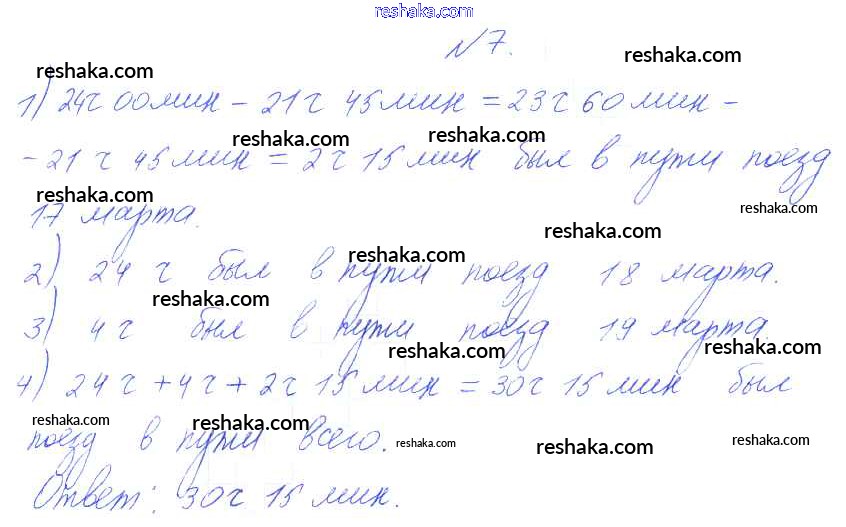 reshaka.com
№7.
reshaka.com
reshaka.com
1) 24ч 00мин - 21ч 45мин = 23ч 60мин -
reshaka.com
reshaka.com
- 21ч 45мин = 2ч 15мин был в пути поезд
reshaka.com
reshaka.com
17 марта.
reshaka.com
reshaka.com
2) 24 ч был в пути поезд 18 марта.
reshaka.com
3) 4ч был в пути поезд 19 марта.
reshaka.com
reshaka.com
4) 24ч + 4ч + 2ч 15мин = 30ч 15мин был
reshaka.com
reshaka.com
поезд в пути всего.
reshaka.com
reshaka.com
reshaka.com
Ответ: 30ч 15мин.